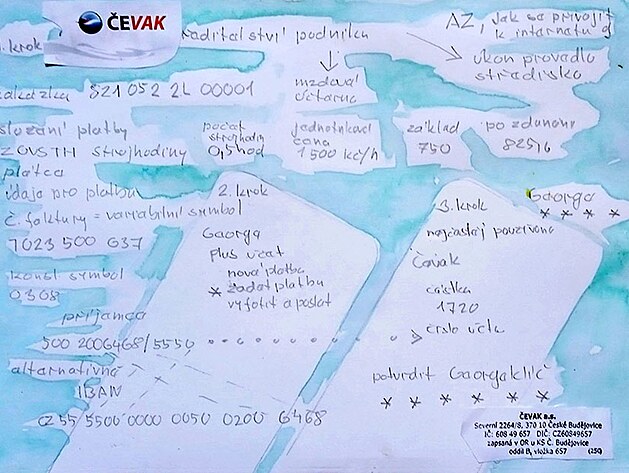 ČEVAK
1. krok
ředitelství podniku
AZ, jak se připojit
k internatu g
úkon provadlo
středisko
mzdová
účtarna
zakázka 821 052 2L 00001
složení platby
ZGVSTH strojhodiny
počat
strojhodin
0,5 hod
jednotková
cena
1500 kč/h
základ
750
po zdanění
825,6
plátce
údaje pro platbu
č. faktury = variabilní symbol
7023 500 637
konst symbol
0308
příjemce
500 2006468/5550
alternativně
IBAN
CZ 55 5500 0000 0050 0200 6468
2. krok
Gaorga
plus účat
nová platba
* zadat platbu
vyfotit a poslat
3. krok
Gaorga
* * * *
najčastěj používané
Čevak
částka
1720
číslo účtu
potvrdit Gaorgaklíč
* * * * * *
ČEVAK a.s.
Severní 2264/8, 370 10 České Budějovice
IČ: 608 49 657 DIČ: CZ60849657
zapsaná v OR u KS Č. Budějovice
oddíl B, vložka 657 (250)